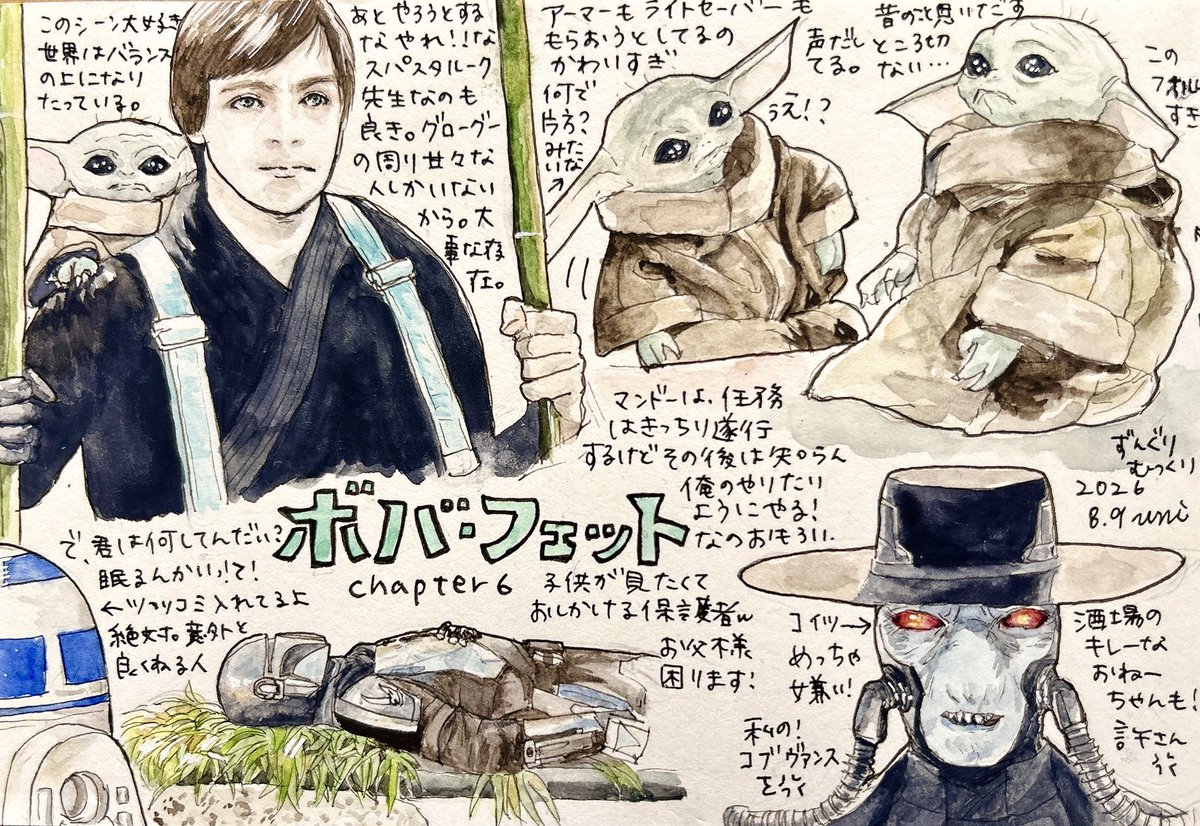 このシーン大好き
世界はバランス
の上になり
たっている。
あとやろうとする
なやれ!!な
スパスタルーク
先生なのも
良き。グローグー
の周り甘々な
人しかいない
から。大
事な存
在。
アーマーもライトセーバーも
もらおうとしてるの
かわいすぎ
何で
ダメ?
みたいな
うえ!?
声だし
てる。
昔のこと思いだす
ところ切
ない…
この
すぎ
マンドーは、任務
はきっちり遂行
するけどその後は知らん
俺のやりたい
ようにやる!
なのおもろい.
ずんぐり
むっくり
2026
8.9 uni
ボバ・フェット
chapter 6
で、君は何してんだい?
眠るんかいっ!て!
←ツッコミ入れてるよ
絶対。意外と
良くねる人
子供が見たくて
おしかける保護者w
お父様
困ります!
コイツ→
めっちゃ
嫌い!
私の!
コブヴァンス
を
酒場の
キレーな
おねー
ちゃんも!
許さん